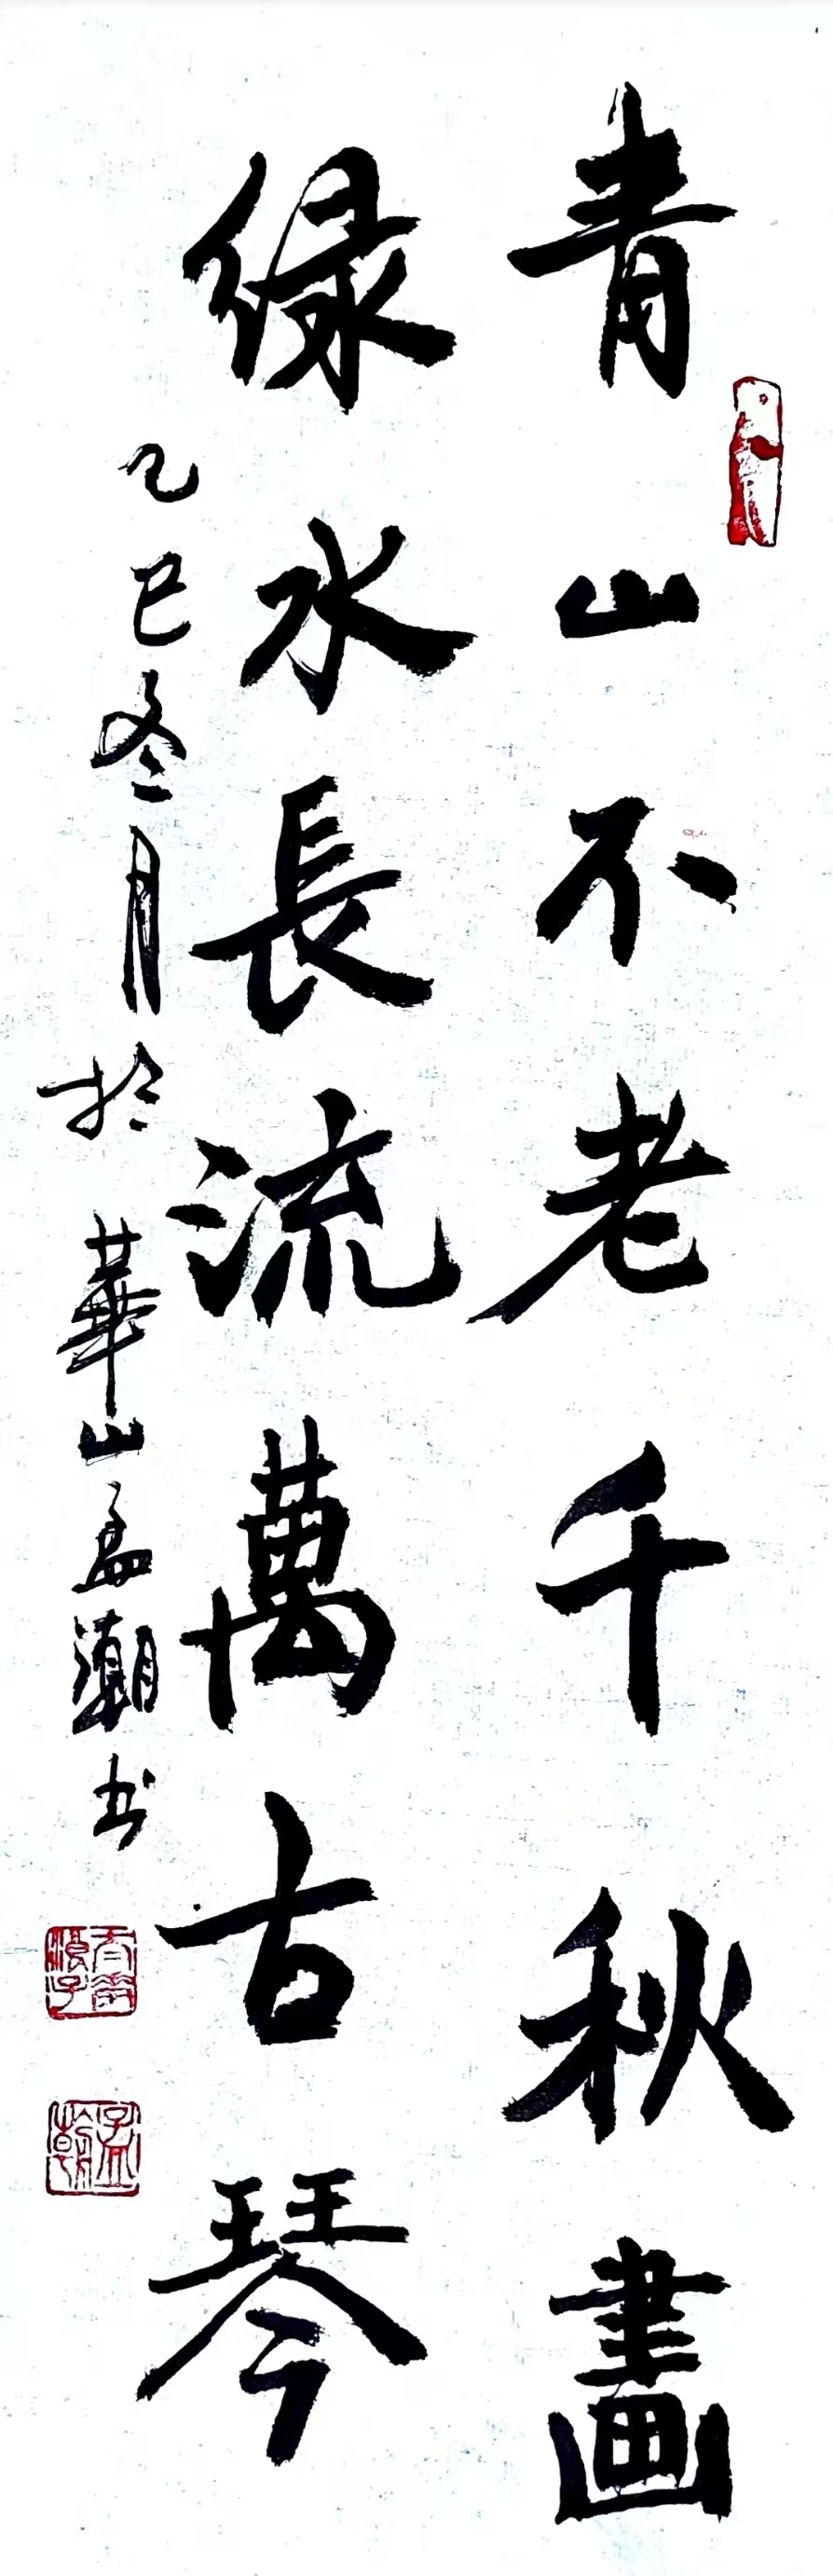 青山不老千秋畫
緑水長流萬古琴
乙巳冬月於華山孟潮书